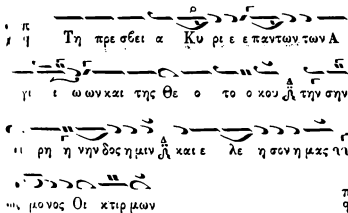 Τη πρεσβει α Κυ ρι ε ε παντων των Α
γι ι ω ων και της Θε ο το ο κου την σην
ει ρη η νην δος η μιν και ε λε η σον η μας
ως μο νος Οι κτιρ μων